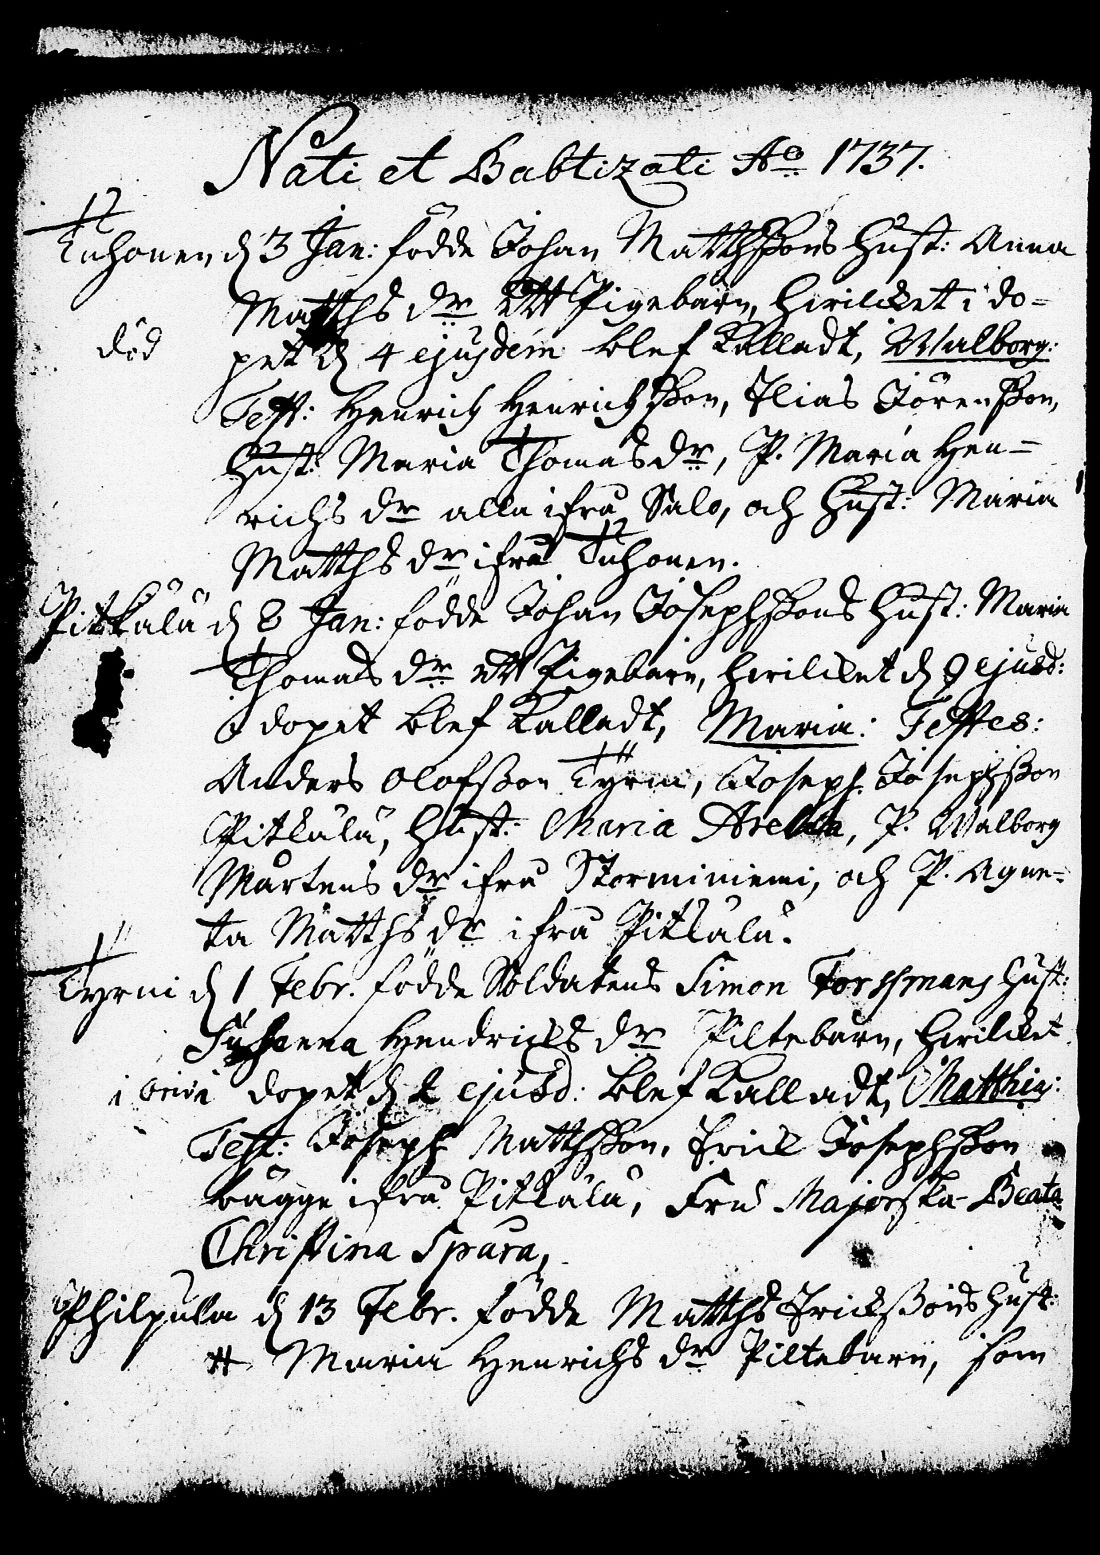 Nati et Babtizati Ao 1737.
Tuhonen d 3 Jan: födde Johan Matthssons Hust: Anna
Matths dr ett Pigebarn, hwilcket i do=
död pet d 4 ejusdem blef Kalladt, Walborg:
Test: Henrich Henrichsson, Elias Jörensson,
Hust: Maria Thomas dr, P. Maria Hen=
richs dr alla ifrå Salo, och Hust: Maria
Matths dr ifrå Tuhonen.
Pitkälä d 8 Jan: födde Johan Josephssons Hust: Maria
Thomas dr ett Pigebarn, hwilcket d 9 ejusd:
i dopet blef Kalladt, Maria: Testes:
Anders Olofsson Tyrni, Joseph Josephsson
Pitkälä, Hust: Maria, P. Walborg
Mårtens dr ifrå Storminiemi, och P. Agne=
ta Matths dr ifrå Pitkälä.
Tyrni d 1 Febr. födde Soldatens Simon Forssmans Hust:
Susanna Hendricks dr Piltebarn, hwilcket
i dopet d 2 ejusd: blef Kalladt, Matthis:
Test: Joseph Matthsson, Erick Josephsson
bägge ifrå Pitkälä, Fru Majorska Beata
Christina Spåra,
Philpula d 13 Febr. födde Matths Erickssons Hust:
Maria Henrichs dr Piltebarn, som